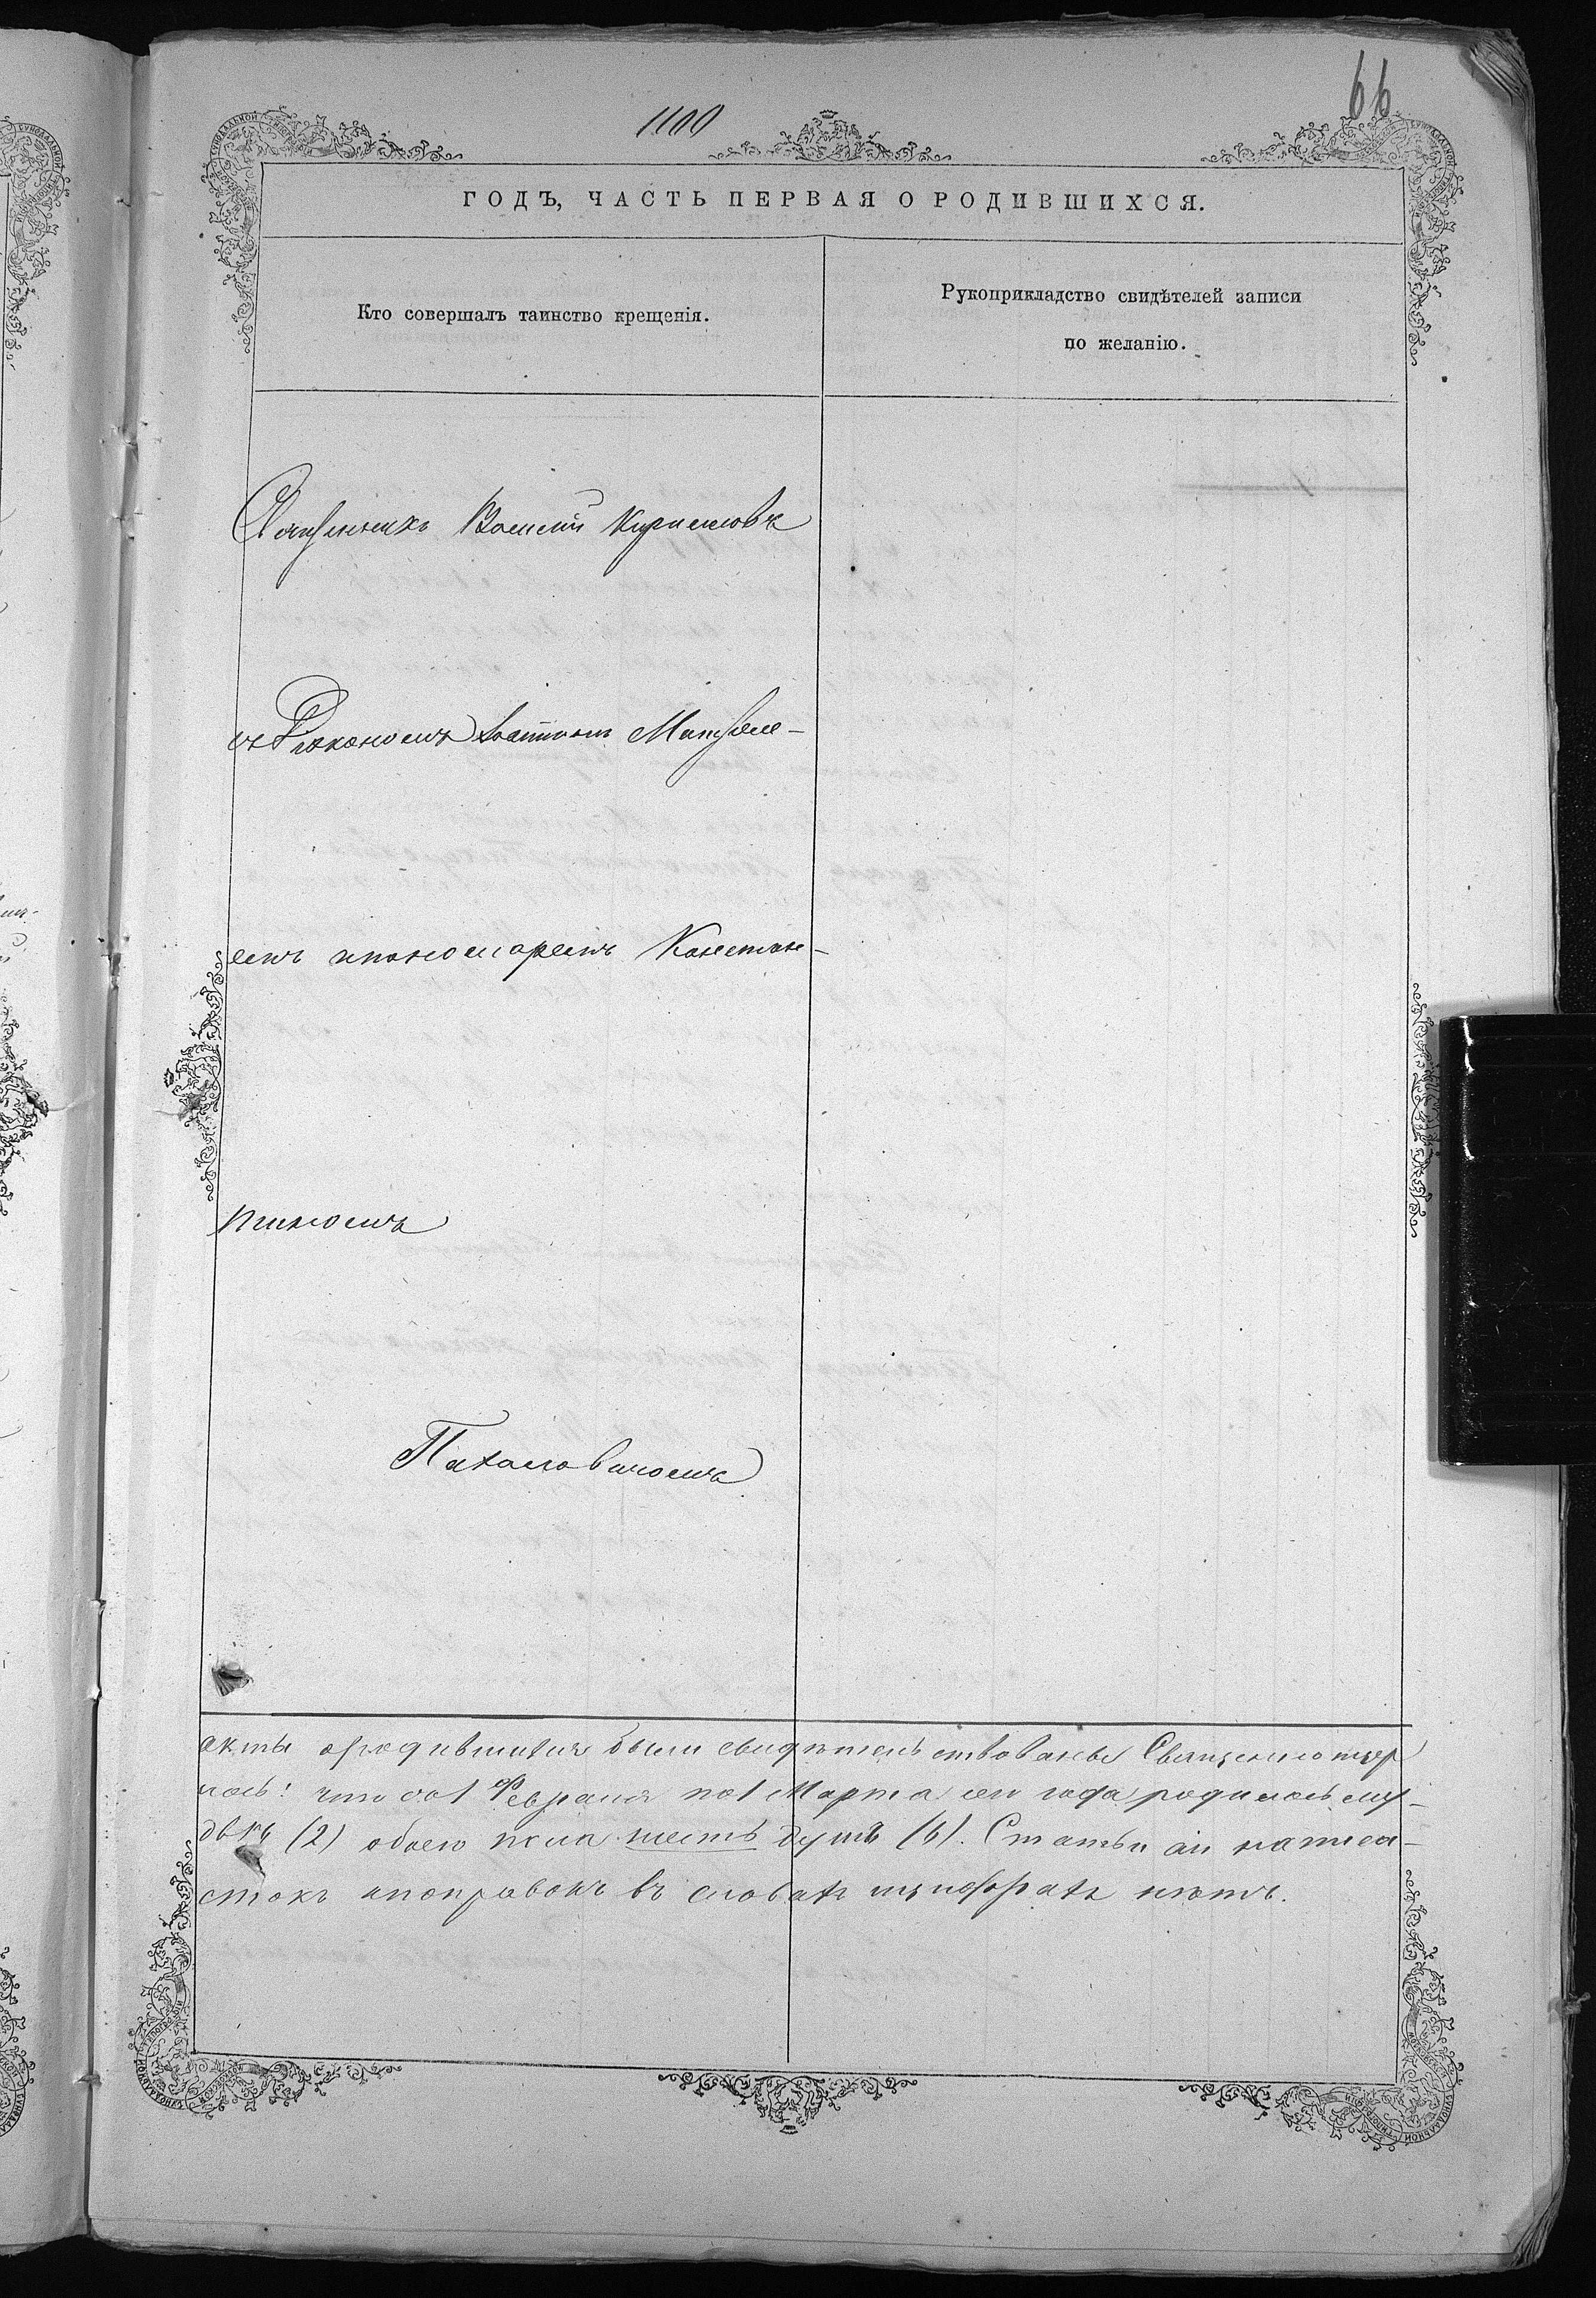 66
1100
ГОДЪ, ЧАСТЬ ПЕРВАЯ О РОДИВШИХСЯ.
Кто совершалъ таинство крещенія.
Рукоприкладство свидѣтелей записи
по желанію.
Священникъ Василій Кирилловъ
съ Діакономъ Матѳѣе-
емъ ипономаремъ Констан-
тиномъ
Пахомовичомъ
акты ородившихся были свидѣтельствованы Священно
лось: что со 1 Февраля по 1 Марта сего года родилось му-
двѣ (2) обоего пола шесть душъ (6). Статьи сіи написа-
стокъ ипоправокъ въ словахъ ицыфрахъ нѣтъ.